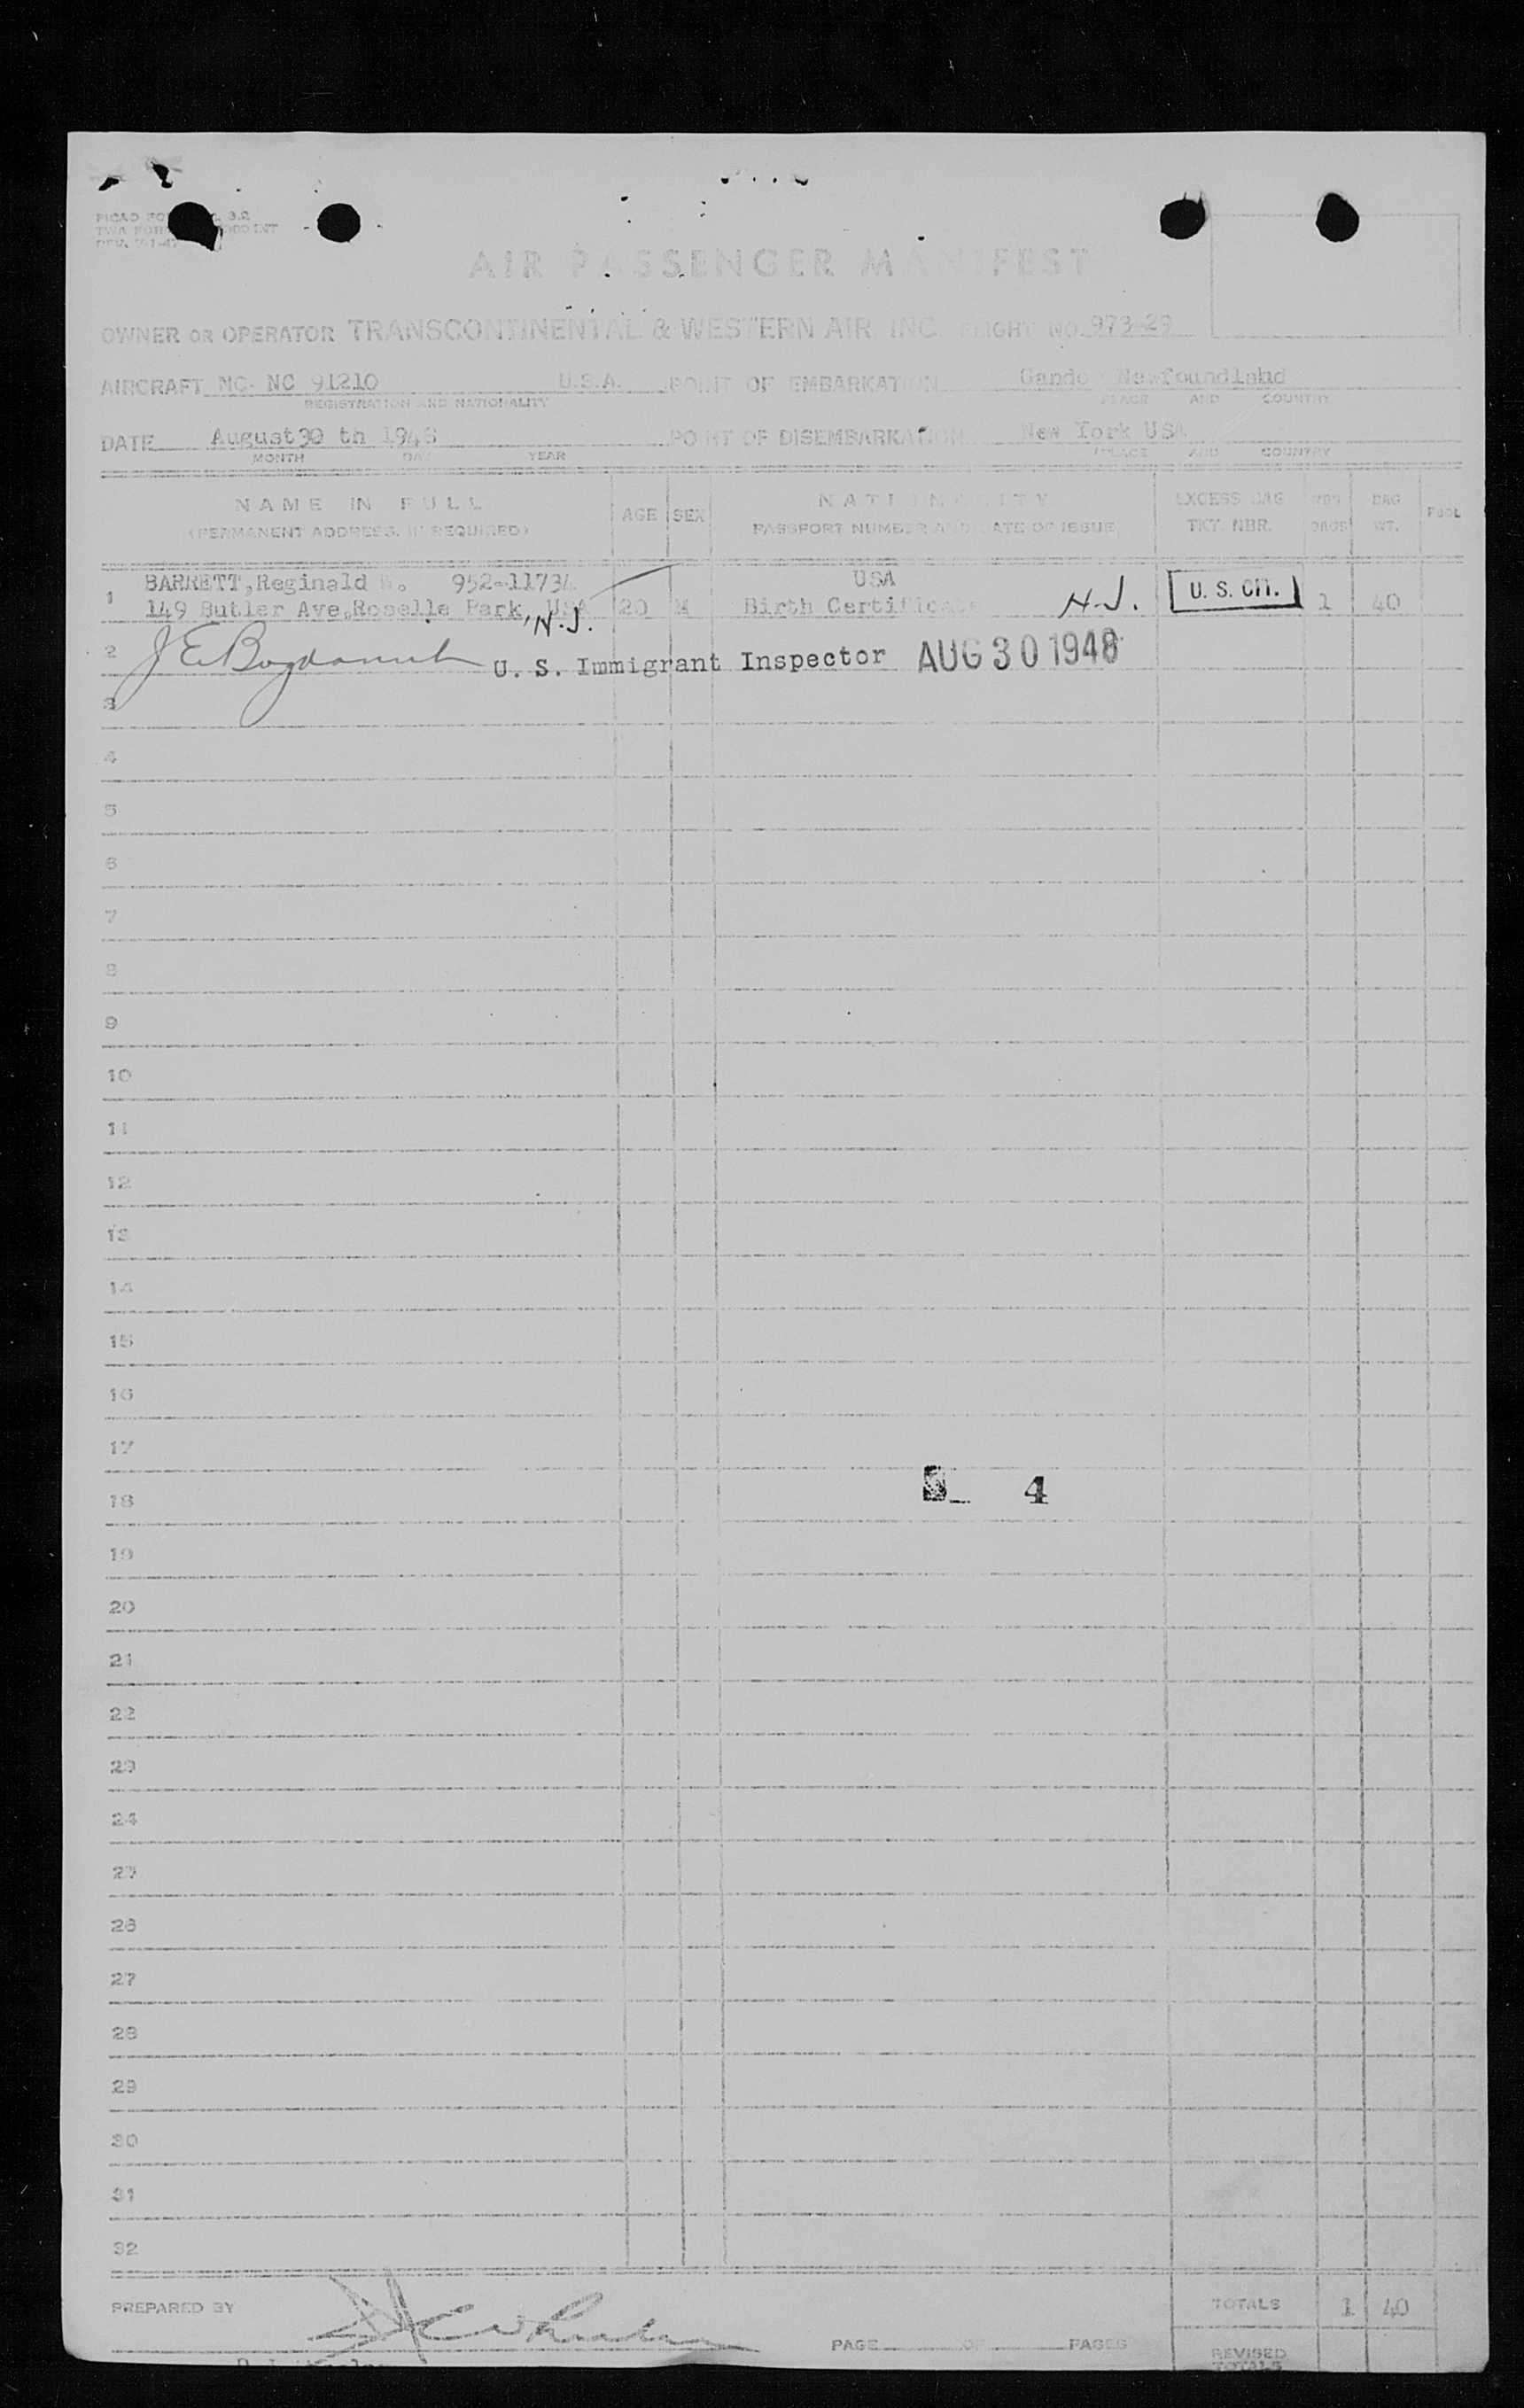 AIR PASSENGER MANIFEST
OWNER OR OPERATOR TRANSCONTINENTAL & WESTERN AIR INC. FLIGHT NO. 973-29
AIRCRAFT NC 91210 U.S.A. POINT OF EMBARKATION Newfoundland
REGISTRATION AND NATIONALITY PLACE AND COUNTRY
DATE August 30 th 1948 POINT OF DISEMBARKATION New York USA
MONTH DAY YEAR PLACE AND COUNTRY
NAME IN FULL NATIONALITY EXCESS BAG BAG
(PERMANENT ADDRESS, IF REQUIRED) AGE SEX PASSPORT NUMBER AND DATE OF ISSUE TKT. NBR. WT.
BARRETT, Reginald 952-11734 USA
1 149 Butler Ave, Roselle Park, N.J. USA 20 M Birth Certificate N.J. U. S. CIT. 1 40
2 U. S. Immigrant Inspector AUG 30 1948
3
4
5
6
7
8
9
10
11
12
13
14
15
16
17
4
18
19
20
21
22
23
24
25
26
27
28
29
30
31
32
PREPARED BY TOTALS 1 40
PAGE OF PAGES
REVISED
TOTALS